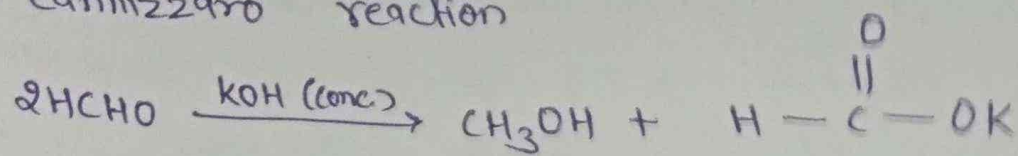 Cannizzaro reaction
O
||
2HCHO KOH (conc.) → CH₃OH + H — C — OK